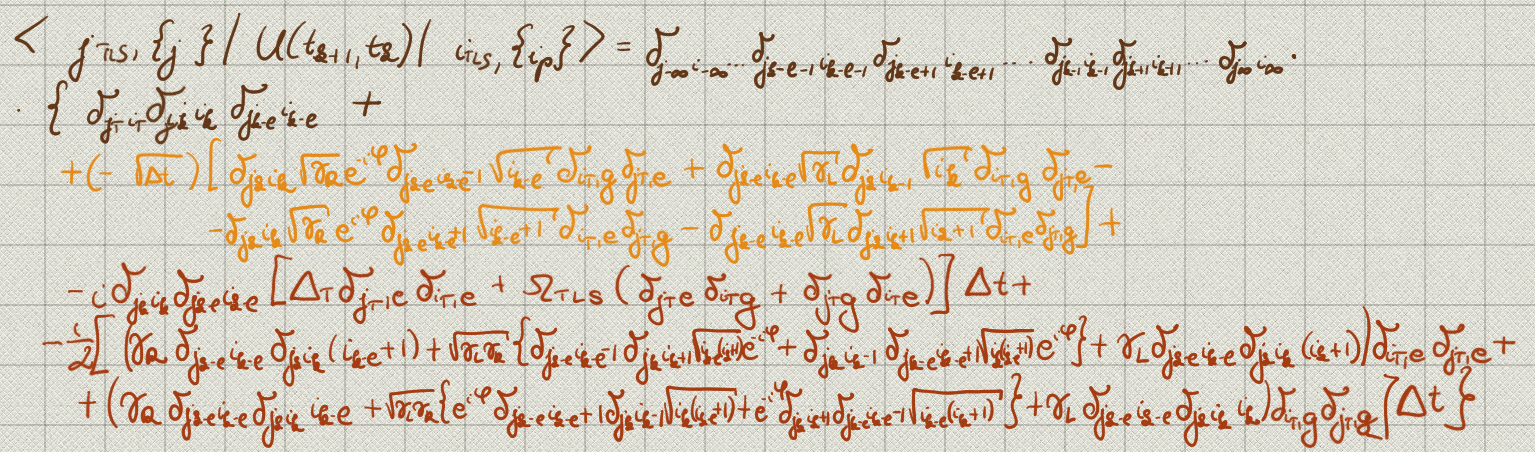 < j_{TLS}, {j_p} | U(t_{k+1}, t_k) | i_{TLS}, {i_p} > = δ_{j_{-∞} i_{-∞}} ... δ_{j_{k-ℓ-1} i_{k-ℓ-1}} δ_{j_{k-ℓ+1} i_{k-ℓ+1}} ... δ_{j_{k-1} i_{k-1}} δ_{j_{k+1} i_{k+1}} ... δ_{j_∞ i_∞} ·
· { δ_{j_T i_T} δ_{j_k i_k} δ_{j_{k-ℓ} i_{k-ℓ}} +
+ (- √Δt) [ δ_{j_k i_k} √γ_R e^{-iφ} δ_{j_{k-ℓ} i_{k-ℓ}-1} √i_{k-ℓ} δ_{i_T,g} δ_{j_T,e} + δ_{j_{k-ℓ} i_{k-ℓ}} √γ_L δ_{j_k i_k-1} √i_k δ_{i_T,g} δ_{j_T,e} -
- δ_{j_k i_k} √γ_R e^{iφ} δ_{j_{k-ℓ} i_{k-ℓ}+1} √i_{k-ℓ}+1 δ_{i_T,e} δ_{j_T,g} - δ_{j_{k-ℓ} i_{k-ℓ}} √γ_L δ_{j_k i_k+1} √i_k+1 δ_{i_T,e} δ_{j_T,g} ] +
- i δ_{j_k i_k} δ_{j_{k-ℓ} i_{k-ℓ}} [ Δ_T δ_{j_T,e} δ_{i_T,e} + Ω_{TLS} ( δ_{j_T e} δ_{i_T g} + δ_{j_T g} δ_{i_T e} ) ] Δt +
- i/2 [ ( γ_R δ_{j_{k-ℓ} i_{k-ℓ}} δ_{j_k i_k} (i_{k-ℓ}+1) + √γ_L γ_R { δ_{j_{k-ℓ} i_{k-ℓ}-1} δ_{j_k i_k+1} √i_{k-ℓ}(i_k+1) e^{-iφ} + δ_{j_k i_k-1} δ_{j_{k-ℓ} i_{k-ℓ}+1} √i_k(i_{k-ℓ}+1) e^{iφ} } + γ_L δ_{j_{k-ℓ} i_{k-ℓ}} δ_{j_k i_k} (i_k+1) ) δ_{i_T,e} δ_{j_T,e} +
+ ( γ_R δ_{j_{k-ℓ} i_{k-ℓ}} δ_{j_k i_k} i_{k-ℓ} + √γ_L γ_R { e^{iφ} δ_{j_{k-ℓ} i_{k-ℓ}+1} δ_{j_k i_k-1} √i_k(i_{k-ℓ}+1) + e^{-iφ} δ_{j_k i_k+1} δ_{j_{k-ℓ} i_{k-ℓ}-1} √i_{k-ℓ}(i_k+1) } + γ_L δ_{j_{k-ℓ} i_{k-ℓ}} δ_{j_k i_k} i_k ) δ_{i_T,g} δ_{j_T,g} ] Δt }